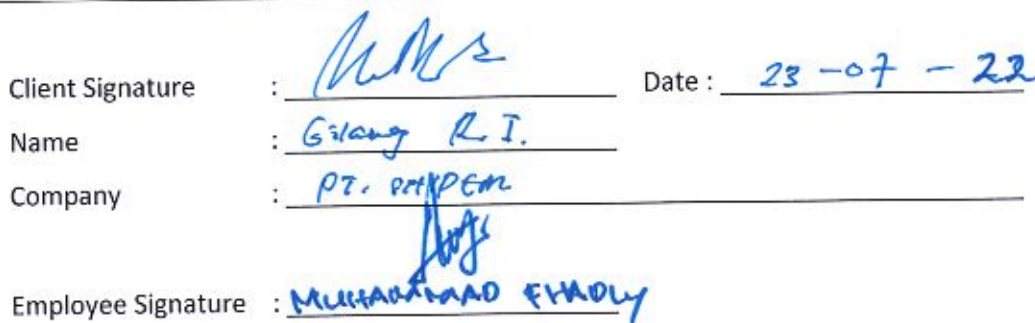 Client Signature : Date : 23-07-22
Name : Gilang R. I.
Company : PT.
Employee Signature : MUHAMMAD FHADLY